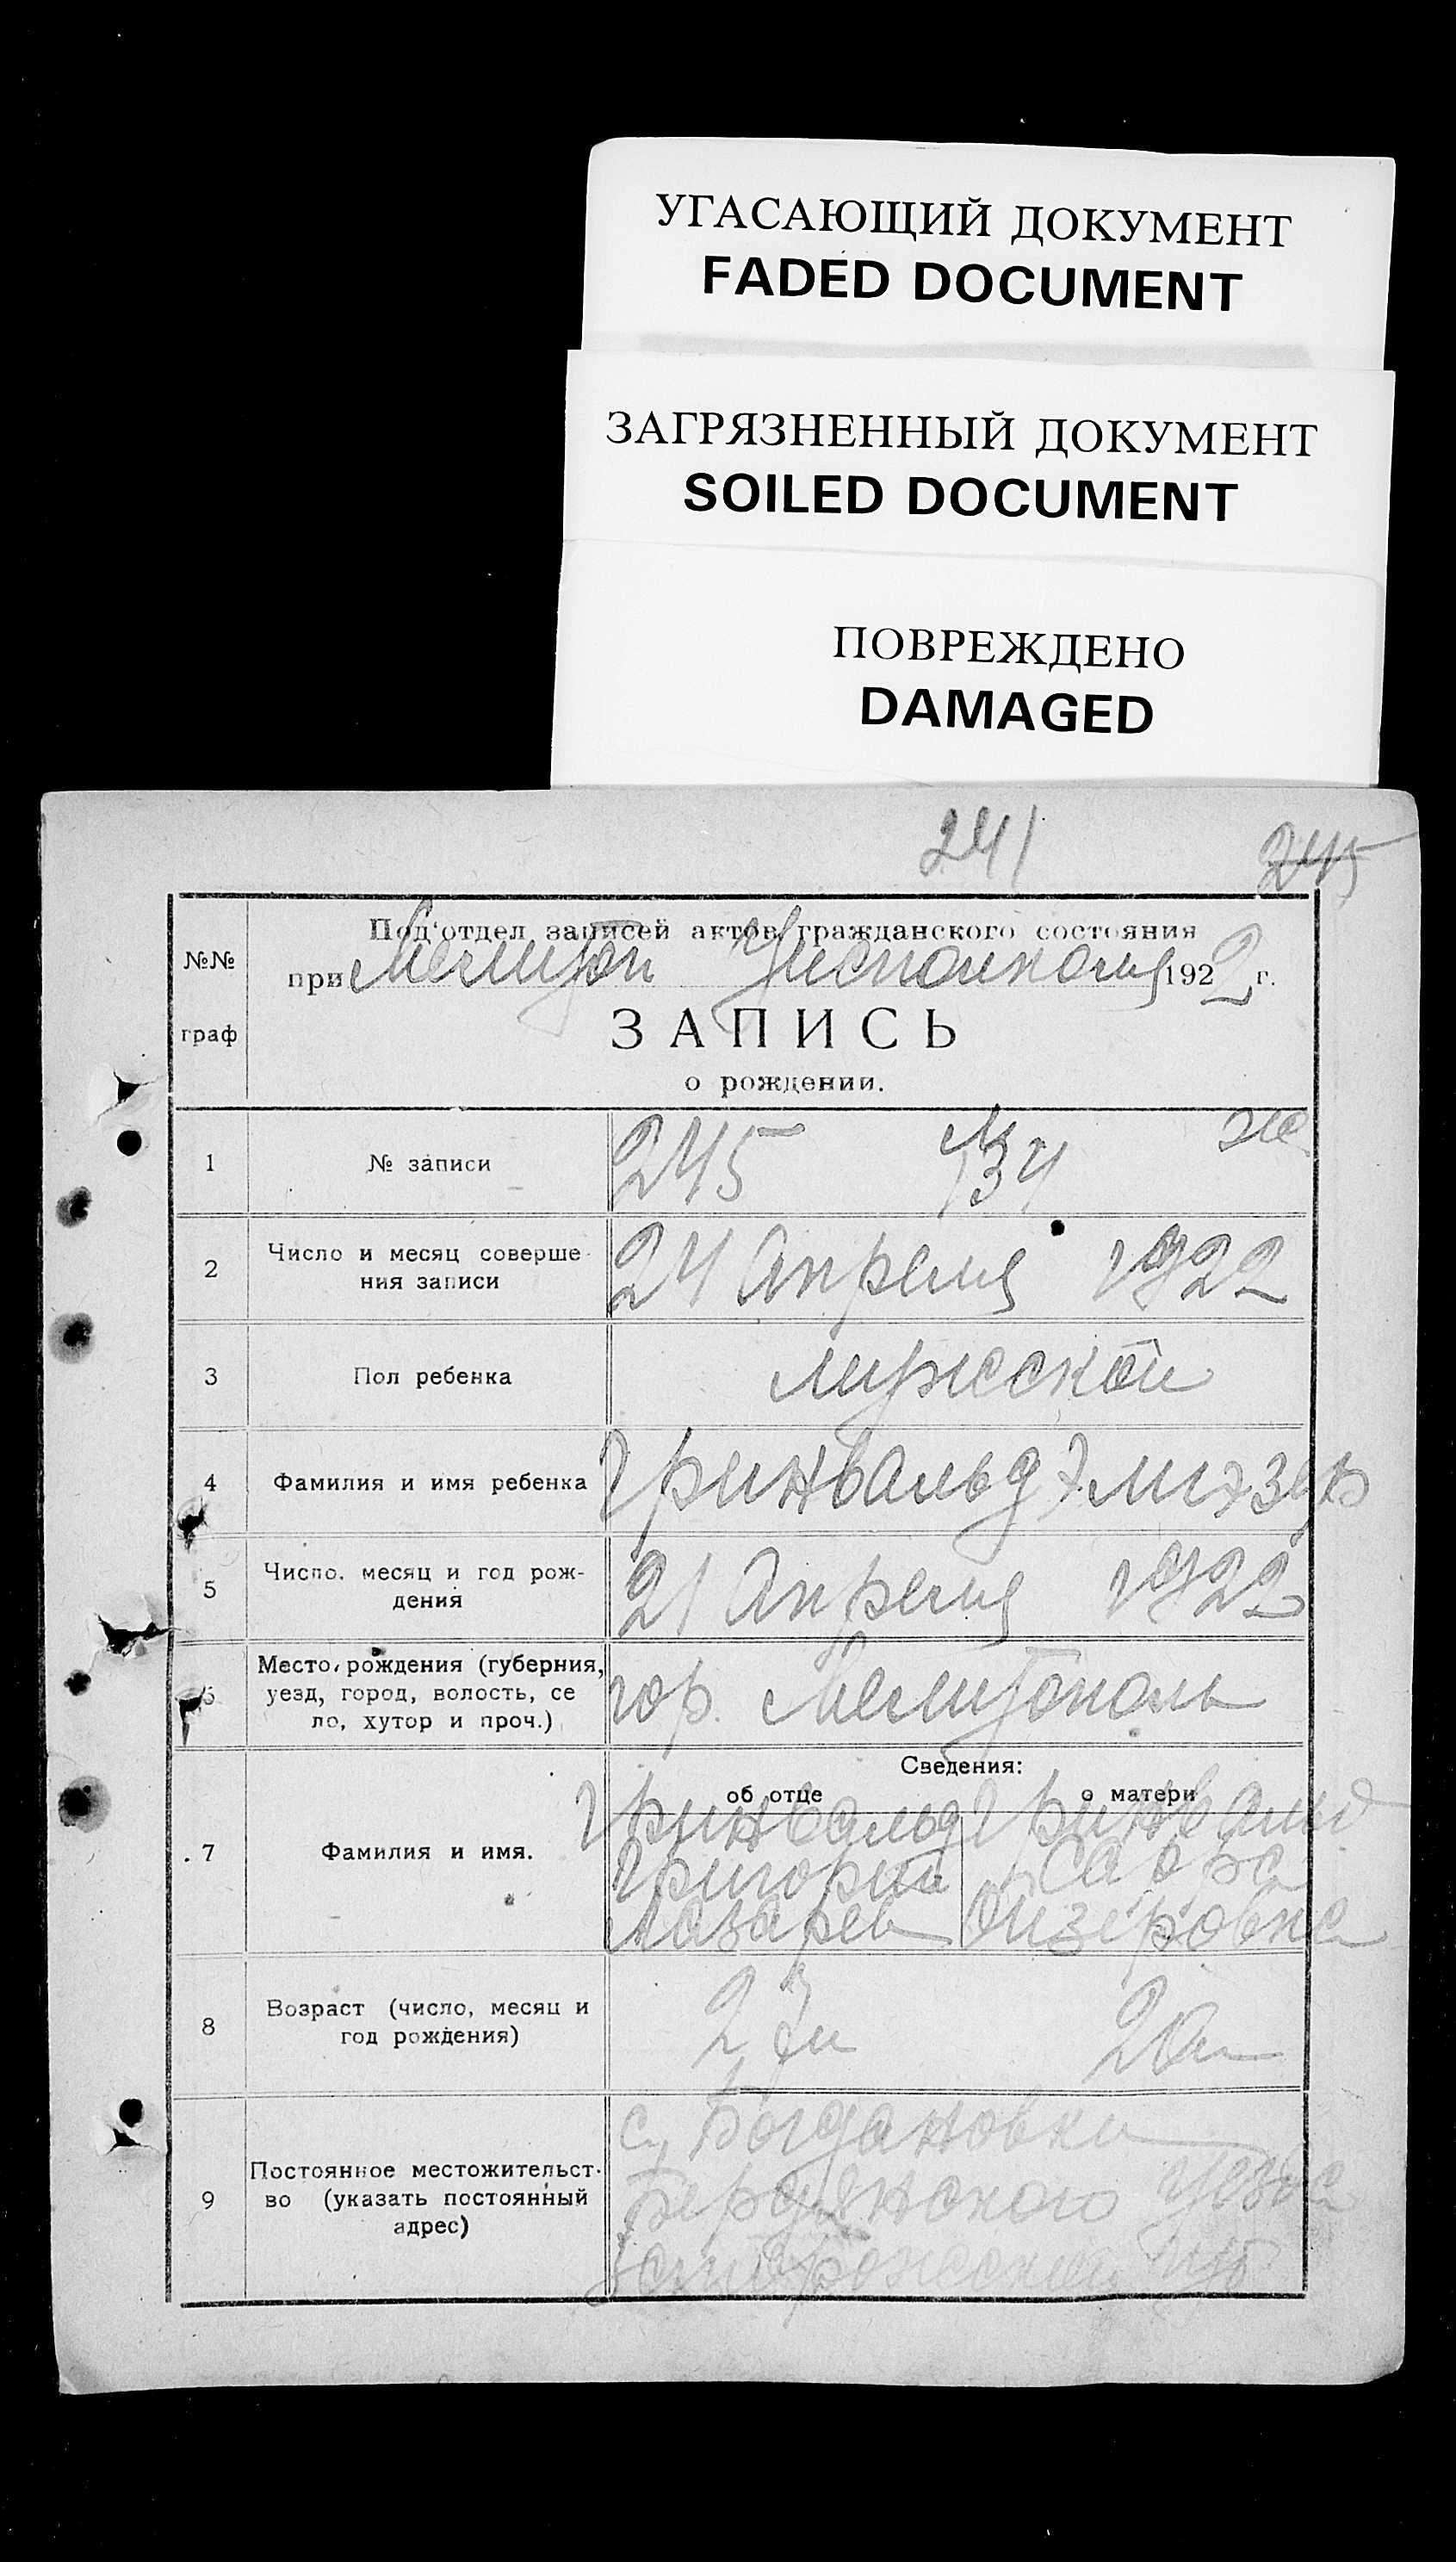 УГАСАЮЩИЙ ДОКУМЕНТ
FADED DOCUMENT
ЗАГРЯЗНЕННЫЙ ДОКУМЕНТ
SOILED DOCUMENT
ПОВРЕЖДЕНО
DAMAGED
241
245
№№ граф
Под'отдел записей актов гражданского состояния
при Мелитоп Уисполкому 1922 г.
ЗАПИСЬ
о рождении.
1 № записи 245 М 134
2 Число и месяц соверше-
ния записи 24 Апреля 1922
3 Пол ребенка мужеской
4 Фамилия и имя ребенка Гринвальд
5 Число, месяц и год рож-
дения 21 Апреля 1922
6 Место рождения (губерния,
уезд, город, волость, се
ло, хутор и проч.) гор. Мелитополь
Сведения:
об отце о матери
7 Фамилия и имя.
Гринвальд Гринвальд
Григорий Сарра
Лазарев
8 Возраст (число, месяц и
год рождения) 27 л 20 л
9 Постоянное местожительст-
во (указать постоянный
адрес)
с. Богдановки
Бердянского уезда
Запорожской губ